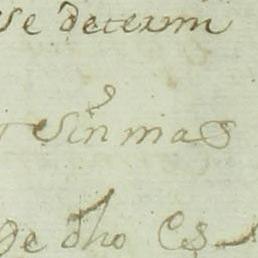 se determ
sin mas
de dho Es